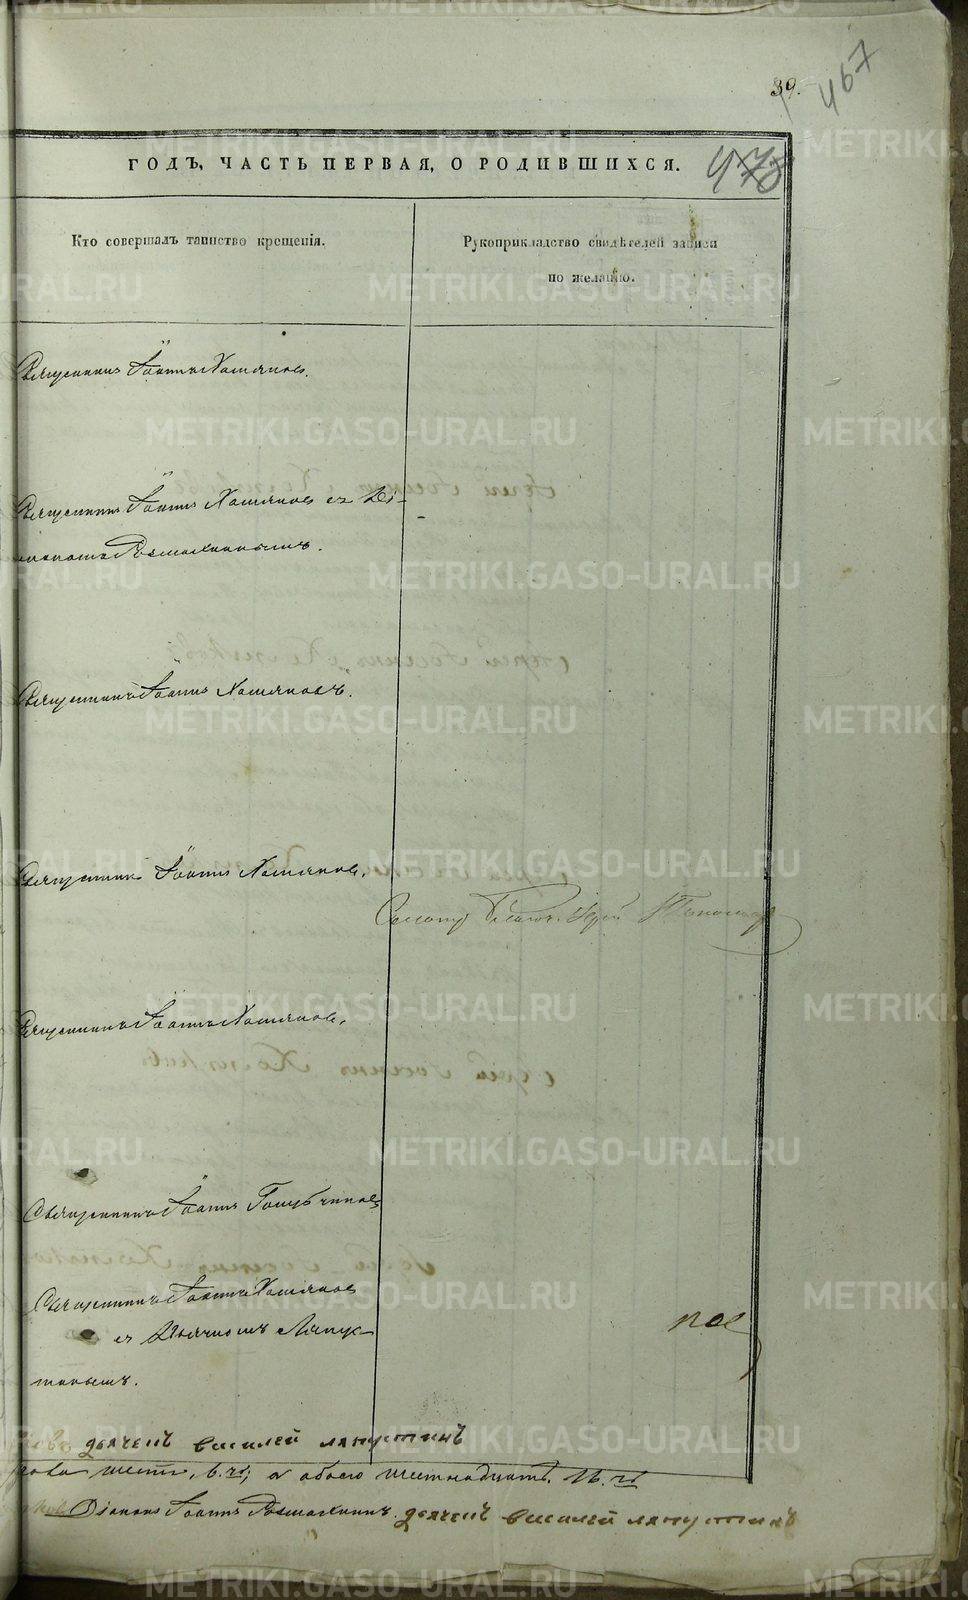 39.
467
ГОДЪ, ЧАСТЬ ПЕРВАЯ, О РОДИВШИХСЯ.
473
Кто совершалъ таинство крещенія.
Рукоприкладство свидѣтелей записи
по желанію.
Священникъ Іоаннъ Хомяковъ.
Священникъ Іоаннъ Хомяковъ съ Ді-
акономъ
Священникъ Іоаннъ Хомяковъ.
Священникъ Іоаннъ Хомяковъ.
Священникъ Іоаннъ Хомяковъ.
Священникъ Іоаннъ Голубчиковъ
Священникъ Іоаннъ Хомяковъ
съ Дьячкомъ Ляпус-
тинымъ.
дьячекъ василей ляпустинъ
шесть, 6. и обоего шестнадцать, 16.
Діаконъ Іоаннъ дьячекъ василей ляпустинъ
METRIKI.GASO-URAL.RU